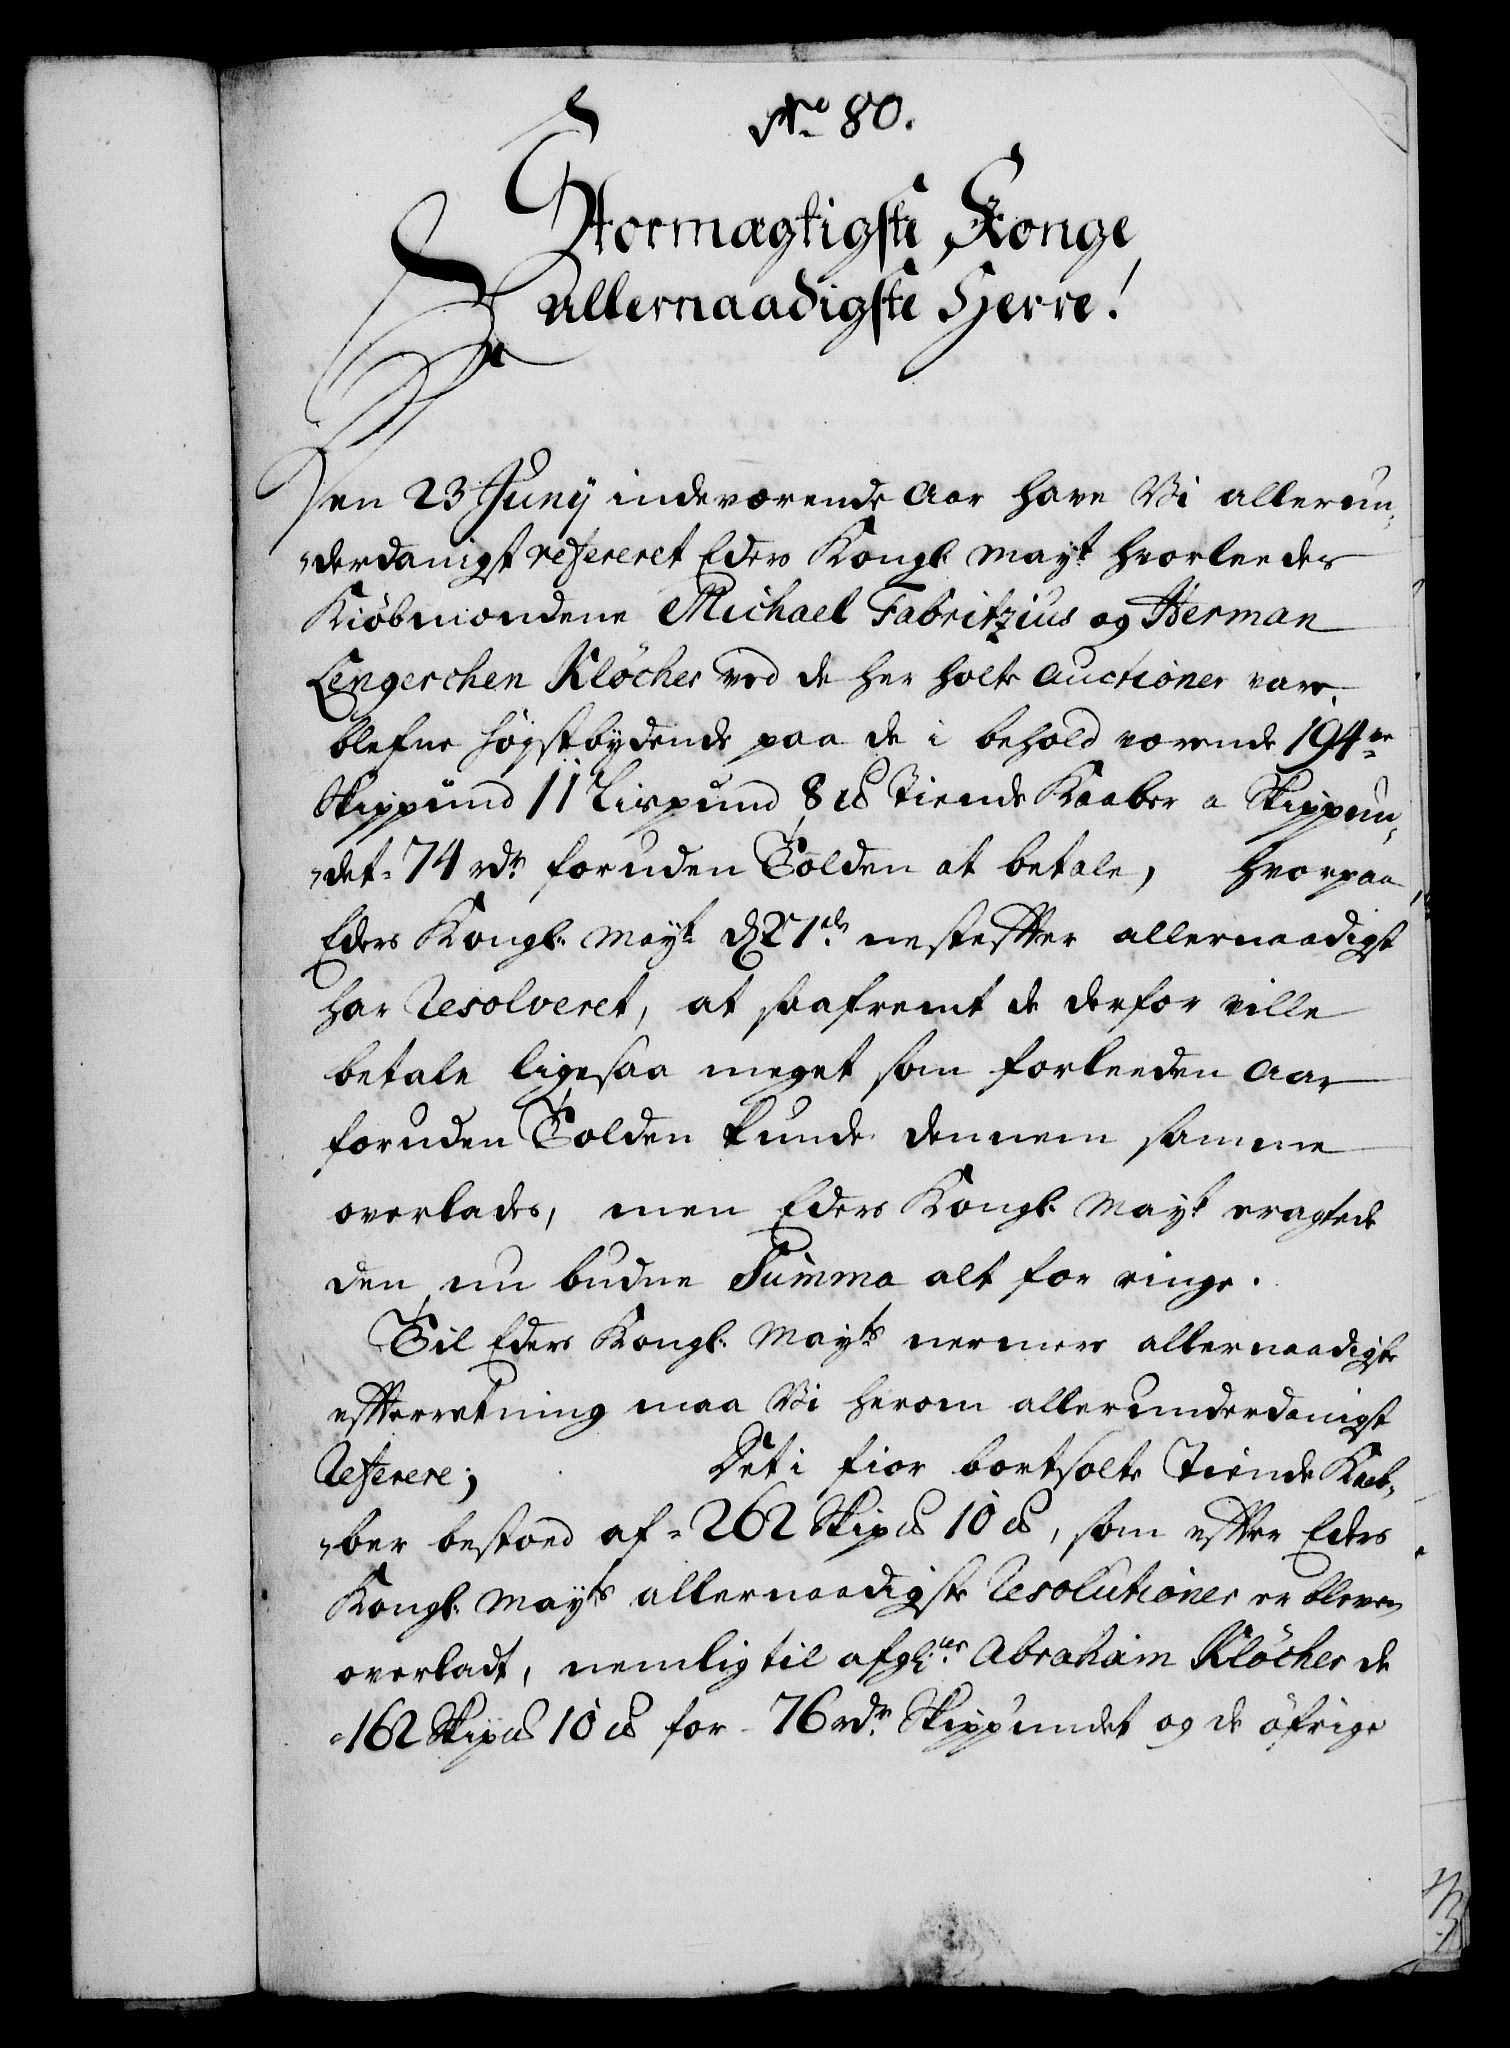 No 80.
Stormægtigste Konge
Allernaadigste Herre!
Den 23 Junÿ indeværende Aar have Vi allerun-
-derdanigst refereret Eders Kongl. Mayt. hvorleedes
Kiöbmændene Michael Fabritzius og Herman
Lengerchen Klöcher ved de her holte Auctioner vare
blefne högstbydende paa de i behold værende 194
Skippund 11 Lispund 8 ℔ Tiende Kaaber a Skippun-
-det 74 rdr. foruden Tolden at betale, hvorpaa
Eders Kongl. Mayt. d. 27de nestefter allernaadigst
har Resolveret, at saafremt de derfor ville
betale ligesaa meget som forleeden Aar
foruden Tolden kunde dennem samme
overlades, men Eders Kongl. Mayt. eragtede
den nu budne Summa alt for ringe.
Til Eders Kongl. Mayts. nermere allernaadigste
efterretning maa Vi herom allerunderdanigst
Referere; Det i fior bortsolte Tiende Kaa-
-ber bestoed af 262 Skip℔ 10 ℔, som efter Eders
Kongl. Mayts allernaadigste Resolutioner er bleven
overladt, nemlig til afg. Abraham Klöcher de
162 Skip℔ 10 ℔ for 76 rdr. Skippundet og de öfrige